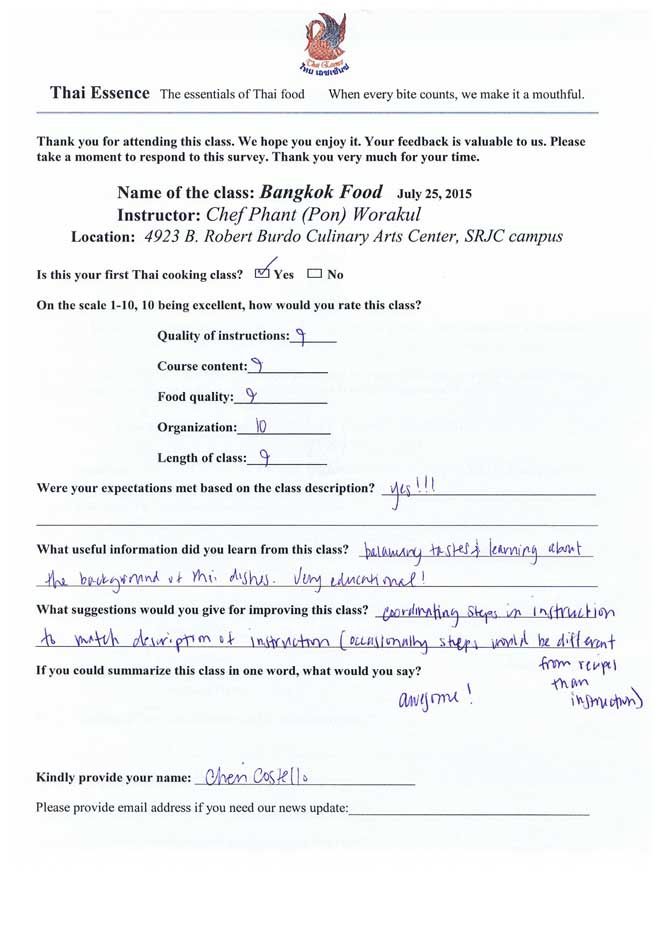 Thai Essence
ไทย เอซเซ้นซ์
Thai Essence The essentials of Thai food When every bite counts, we make it a mouthful.
Thank you for attending this class. We hope you enjoy it. Your feedback is valuable to us. Please
take a moment to respond to this survey. Thank you very much for your time.
Name of the class: Bangkok Food July 25, 2015
Instructor: Chef Phant (Pon) Worakul
Location: 4923 B. Robert Burdo Culinary Arts Center, SRJC campus
Is this your first Thai cooking class? ☑ Yes ☐ No
On the scale 1-10, 10 being excellent, how would you rate this class?
Quality of instructions: 9
Course content: 9
Food quality: 9
Organization: 10
Length of class: 9
Were your expectations met based on the class description? yes!!!
What useful information did you learn from this class? balancing tastes & learning about
the background of dishes. Very educational!
What suggestions would you give for improving this class? coordinating steps in instruction
to match description of instruction (occasionally steps would be different
from recipe
than
instruction)
If you could summarize this class in one word, what would you say?
awesome!
Kindly provide your name: Cheri Costello
Please provide email address if you need our news update: